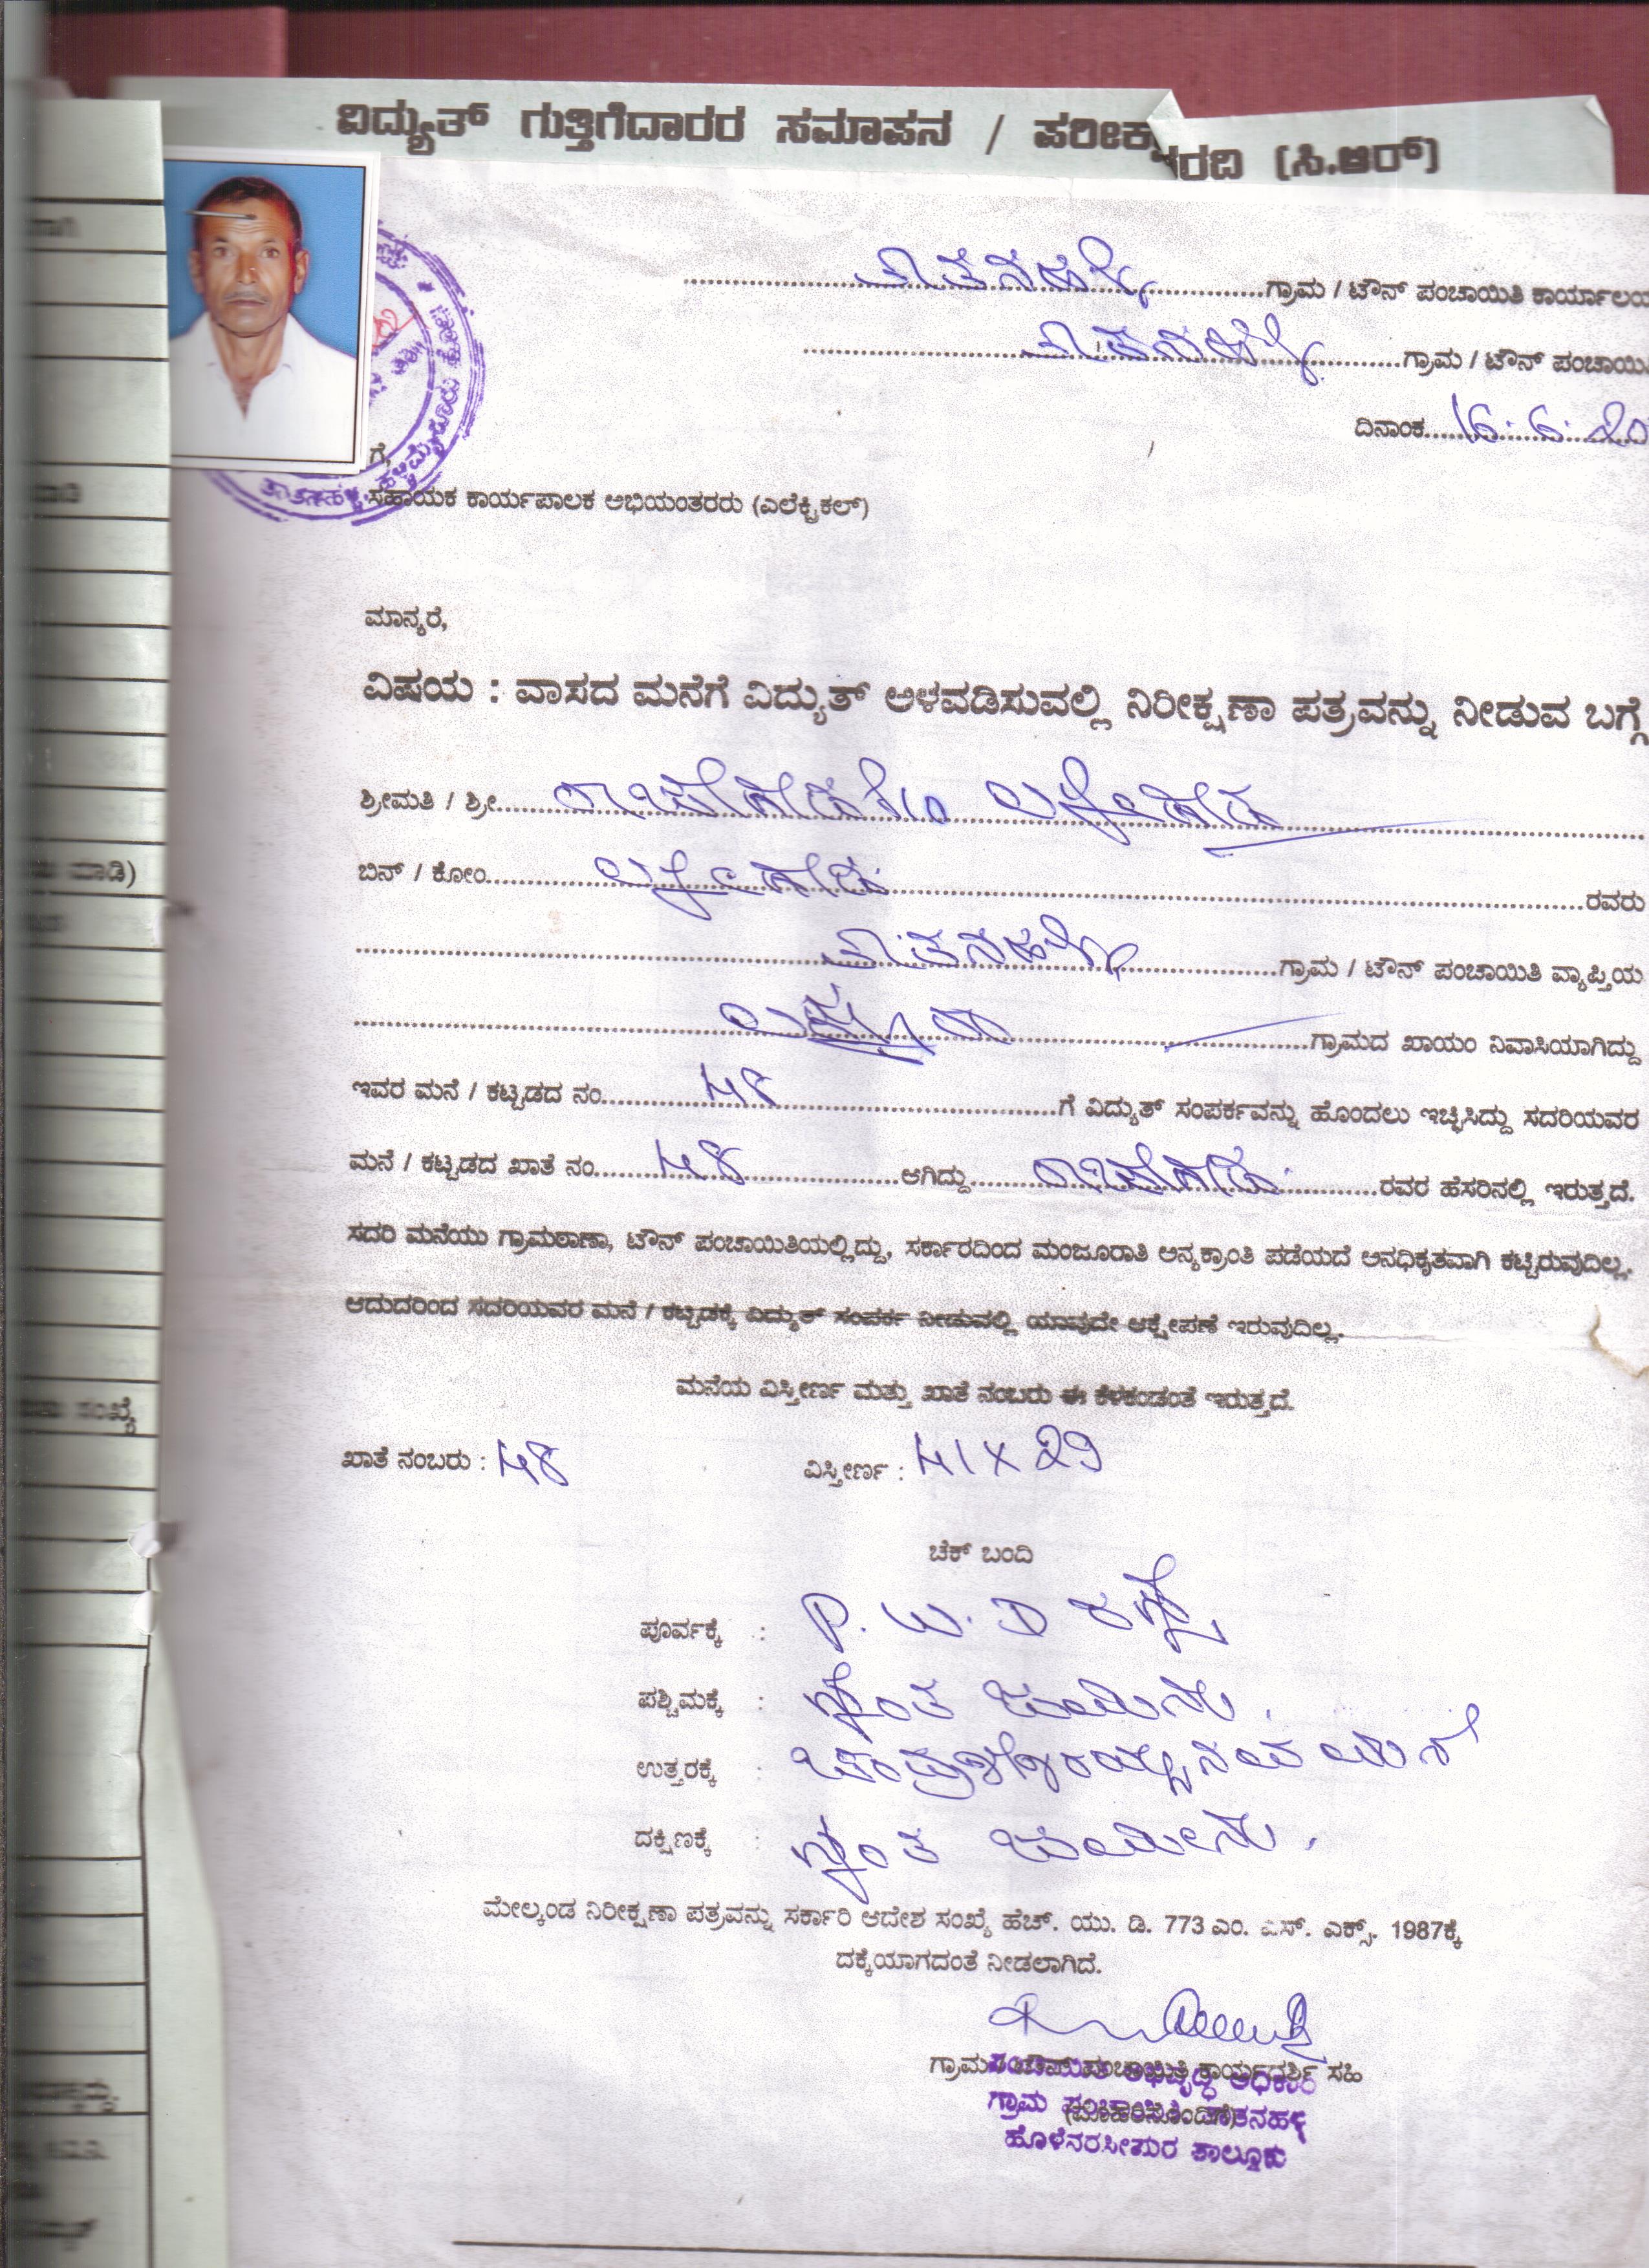 ವಿದ್ಯುತ್ ಗುತ್ತಿಗೆದಾರರ ಸಮಾಪನ / ಪರೀಕ್ಷಾ ರದಿ (ಸಿ.ಆರ್)
ತಾತನಹಳ್ಳಿ ಗ್ರಾಮ / ಟೌನ್ ಪಂಚಾಯಿತಿ ಕಾರ್ಯಾಲಯ
ತಾತನಹಳ್ಳಿ ಗ್ರಾಮ / ಟೌನ್ ಪಂಚಾಯಿ
ದಿನಾಂಕ 16.6.20
ಗೆ,
ಸಹಾಯಕ ಕಾರ್ಯಪಾಲಕ ಅಭಿಯಂತರರು (ಎಲೆಕ್ಟ್ರಿಕಲ್)
ಮಾನ್ಯರೆ,
ವಿಷಯ : ವಾಸದ ಮನೆಗೆ ವಿದ್ಯುತ್ ಅಳವಡಿಸುವಲ್ಲಿ ನಿರೀಕ್ಷಣಾ ಪತ್ರವನ್ನು ನೀಡುವ ಬಗ್ಗೆ
ಶ್ರೀಮತಿ / ಶ್ರೀ
ಬಿನ್ / ಕೋಂ ರವರು
ತಾತನಹಳ್ಳಿ ಗ್ರಾಮ / ಟೌನ್ ಪಂಚಾಯಿತಿ ವ್ಯಾಪ್ತಿಯ
ಗ್ರಾಮದ ಖಾಯಂ ನಿವಾಸಿಯಾಗಿದ್ದು
ಇವರ ಮನೆ / ಕಟ್ಟಡದ ನಂ 48 ಗೆ ವಿದ್ಯುತ್ ಸಂಪರ್ಕವನ್ನು ಹೊಂದಲು ಇಚ್ಛಿಸಿದ್ದು ಸದರಿಯವರ
ಮನೆ / ಕಟ್ಟಡದ ಖಾತೆ ನಂ 48 ಆಗಿದ್ದು ರವರ ಹೆಸರಿನಲ್ಲಿ ಇರುತ್ತದೆ.
ಸದರಿ ಮನೆಯು ಗ್ರಾಮಠಾಣಾ, ಟೌನ್ ಪಂಚಾಯಿತಿಯಲ್ಲಿದ್ದು, ಸರ್ಕಾರದಿಂದ ಮಂಜೂರಾತಿ ಅನ್ಯಕ್ರಾಂತಿ ಪಡೆಯದೆ ಅನಧಿಕೃತವಾಗಿ ಕಟ್ಟಿರುವುದಿಲ್ಲ.
ಆದುದರಿಂದ ಸದರಿಯವರ ಮನೆ / ಕಟ್ಟಡಕ್ಕೆ ವಿದ್ಯುತ್ ಸಂಪರ್ಕ ನೀಡುವಲ್ಲಿ ಯಾವುದೇ ಆಕ್ಷೇಪಣೆ ಇರುವುದಿಲ್ಲ.
ಮನೆಯ ವಿಸ್ತೀರ್ಣ ಮತ್ತು ಖಾತೆ ನಂಬರು ಈ ಕೆಳಕಂಡಂತೆ ಇರುತ್ತದೆ.
ಖಾತೆ ನಂಬರು : 48 ವಿಸ್ತೀರ್ಣ : 41 X 29
ಚೆಕ್ ಬಂದಿ
ಪೂರ್ವಕ್ಕೆ : P. W. D ರಸ್ತೆ
ಪಶ್ಚಿಮಕ್ಕೆ : ಸ್ವಂತ ಜಮೀನು
ಉತ್ತರಕ್ಕೆ :
ದಕ್ಷಿಣಕ್ಕೆ : ಸ್ವಂತ ಜಮೀನು.
ಮೇಲ್ಕಂಡ ನಿರೀಕ್ಷಣಾ ಪತ್ರವನ್ನು ಸರ್ಕಾರಿ ಆದೇಶ ಸಂಖ್ಯೆ ಹೆಚ್. ಯು. ಡಿ. 773 ಎಂ. ಎಸ್. ಎಕ್ಸ್. 1987ಕ್ಕೆ
ದಕ್ಕೆಯಾಗದಂತೆ ನೀಡಲಾಗಿದೆ.
ಸಹಿ
ಗ್ರಾಮ
ಹೊಳೆನರಸೀಪುರ ತಾಲ್ಲೂಕು